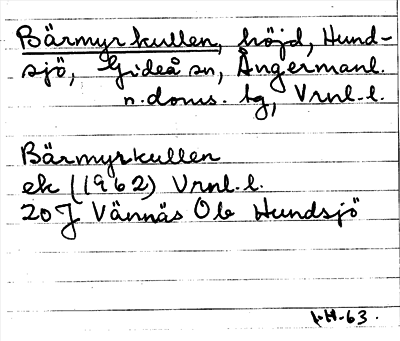 Bärmyrkullen, höjd, Hund-
sjö, Gideå sn, Ångermanl.
n. doms. tg, Vrnl. l.
Bärmyrkullen
ek (1962) Vrnl. l.
20 J Vännäs Ob Hundsjö
1-H-63.